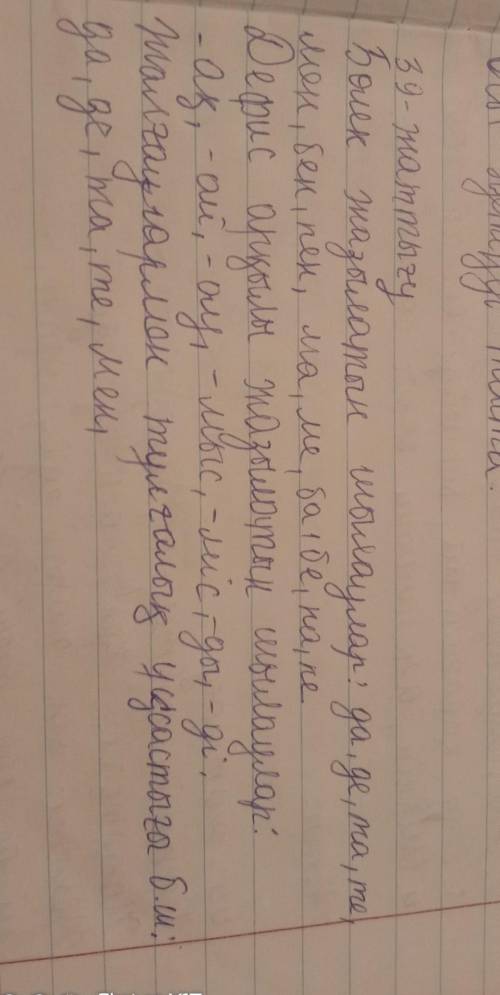 39-жаттығу
Бөлек жазылатын шылаулар: да, де, та, те,
мен, бен, пен, ма, ме, ба, бе, па, пе
Дефис арқылы жазылатын шылаулар:
-ақ, -ай, -ау, -мыс, -міс, -ды, -ді.
Жалғаулармен тұлғалық ұқсастығы б.ш:
да, де, та, те, мен,